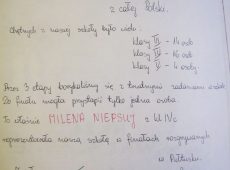 z całej Polski.
Chętnych z naszej szkoły było wielu:
klasy - 14 osób
klasy - osób
klasy V - 4 osoby
Przez 3 etapy borykaliśmy się z trudnymi zadaniami
Do finału mogła przystąpić tylko jedna osoba.
To właśnie MILENA NIEPSUJ z kl IVc
reprezentowała naszą szkołę w finałach rozgrywanych
w Pułtusku.